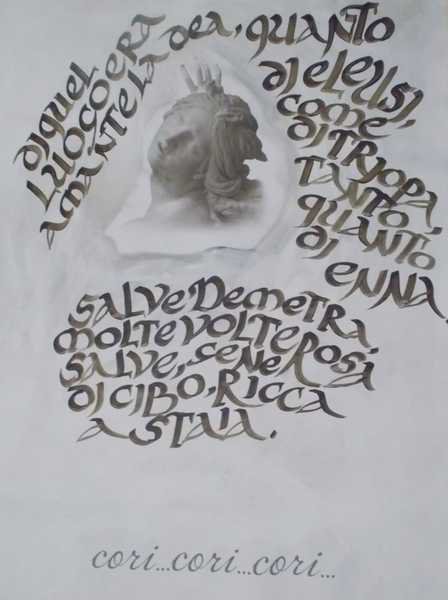 di quel
luogo era
amante la dea, quanto
di eleusi,
come
di triopa,
tanto,
quanto
di
enna
salve Demetra,
molte volte
salve, generosa
di cibo, ricca
a staia.
cori...cori...cori...